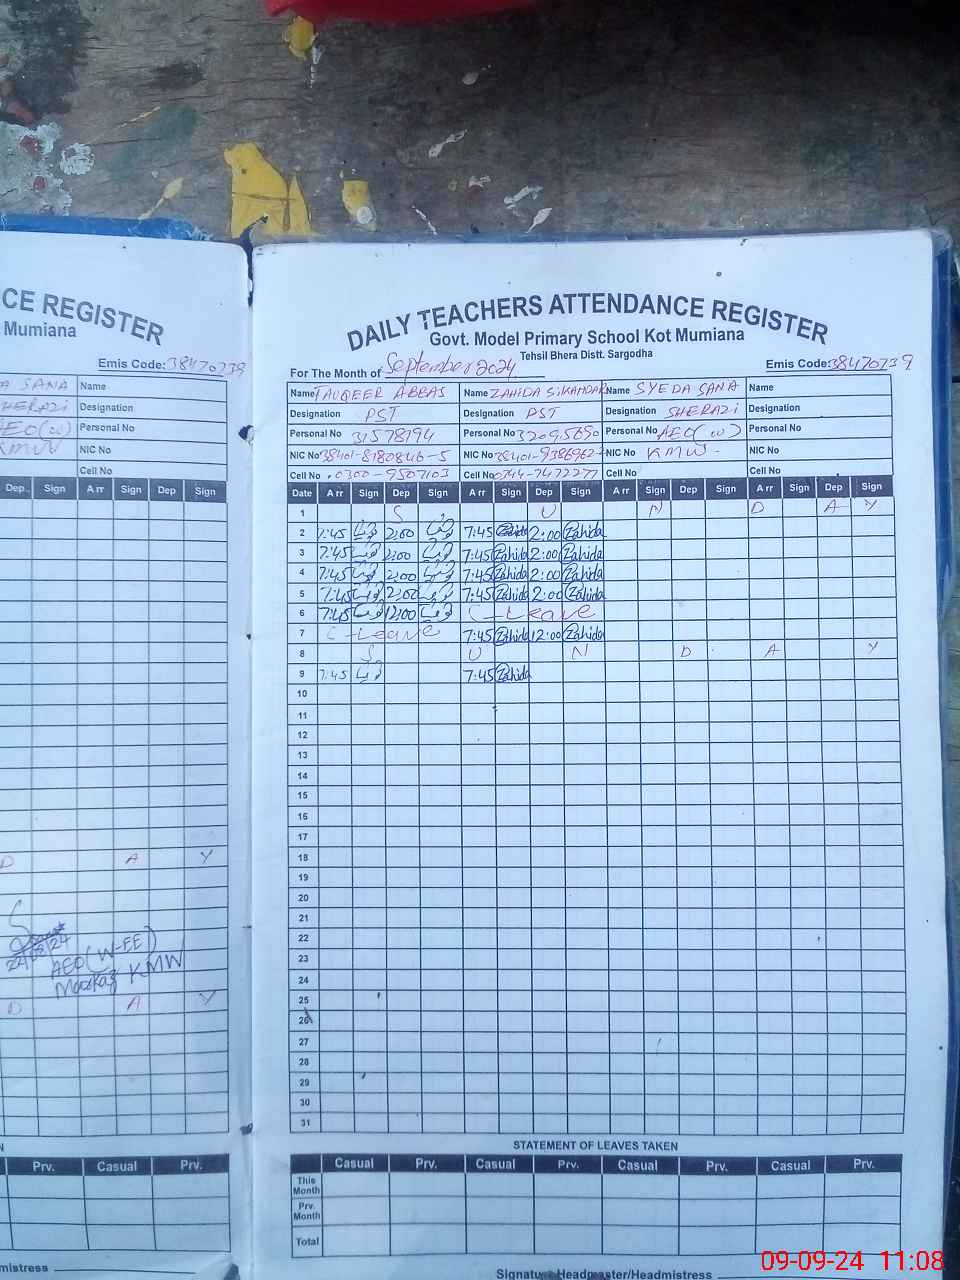 CE REGISTER
Mumiana
Emis Code: 38470739
A SANA Name
SHERAZI Designation
AEO (W) Personal No
KMW NIC No
Cell No
Dep Sign A rr Sign Dep Sign
D A Y
24
AEO (W-EE)
Markaz KMW
D A Y
N
Prv. Casual Prv.
dmistress
DAILY TEACHERS ATTENDANCE REGISTER
Govt. Model Primary School Kot Mumiana
Tehsil Bhera Distt. Sargodha
For The Month of September 2024 Emis Code: 38470739
Name TAUQEER ABBAS Name ZAHIDA SIKANDAR Name SYEDA SANA Name
Designation PST Designation PST Designation SHERAZI Designation
Personal No 31578194 Personal No 32095690 Personal No AEO (W) Personal No
NIC No 38401-8180846-5 NIC No NIC No KMW- NIC No
Cell No 0300-9507103 Cell No Cell No Cell No
Date A rr Sign Dep Sign A rr Sign Dep Sign A rr Sign Dep Sign A rr Sign Dep Sign
1 S U N D A Y
2 7:45 2:00 7:45 Zahida 2:00 Zahida
3 7:45 2:00 7:45 Zahida 2:00 Zahida
4 7:45 2:00 7:45 Zahida 2:00 Zahida
5 7:45 2:00 7:45 Zahida 2:00 Zahida
6 7:45 12:00 C-Leave
7 C-Leave 7:45 Zahida 12:00 Zahida
8 S U N D A Y
9 7:45 7:45 Zahida
10
11
12
13
14
15
16
17
18
19
20
21
22
23
24
25
26
27
28
29
30
31
STATEMENT OF LEAVES TAKEN
Casual Prv. Casual Prv. Casual Prv. Casual Prv.
This Month
Prv. Month
Total
Signature Headmaster/Headmistress
09-09-24 11:08